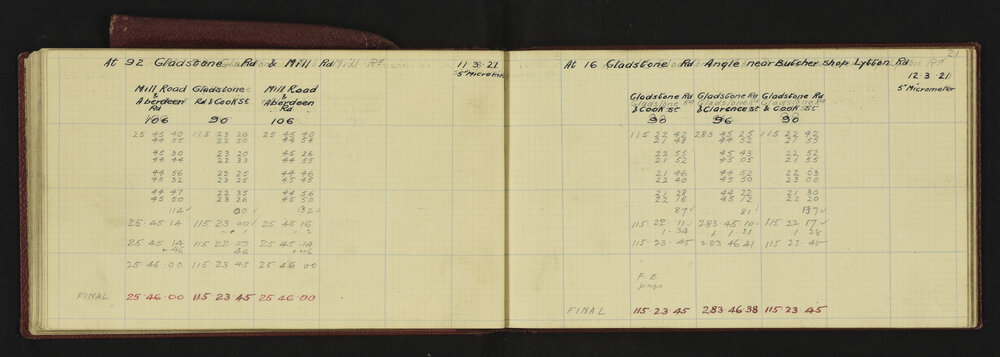 At 92 Gladstone Rd & Mill Rd
11 3 21
5" Micrometer
Mill Road Gladstone Mill Road
& Rd & Cook St &
Aberdeen Aberdeen
Rd Rd
106 90 106
25 45 40 115 23 26 25 45 40
44 55 22 50 44 54
45 30 23 20 45 26
44 44 22 33 44 55
44 56 22 25 44 46
45 32 23 25 45 45
44 47 22 35 44 56
45 50 23 26 45 50
114 132
25 45 14 115 23 00 25 45 16
25 45 14 115 22 59 25 45 14
+ 46 46 + 46
25 46 00 115 23 45 25 46 00
FINAL 25 46 00 115 23 45 25 46 00
21
At 16 Gladstone Rd Angle near Butcher shop Lytton Rd
12 3 21
5" Micrometer
Gladstone Rd Gladstone Rd Gladstone Rd
& Cook St & Clarence St & Cook St
90 96 90
115 22 42 283 45 25 115 22 42
21 48 44 52 21 55
22 55 45 43 22 52
21 52 45 05 21 55
21 46 44 52 22 03
22 40 45 50 23 00
21 28 44 22 21 30
22 76 45 72 22 20
87 81 137
115 22 11 283 45 10 115 22 17
1 34 1 31 1 28
115 23 45 283 46 41 115 23 45
FINAL 115 23 45 283 46 38 115 23 45